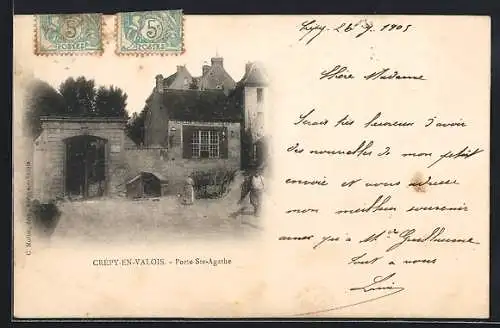 5 5
Crépy 26 9 1905
Chère Madame
Serait très heureux d'avoir
des nouvelles de mon petit
envoie et vous adresse
mon meilleur souvenir
ainsi qu'à M. Guillaume
Tout à vous
CRÉPY-EN-VALOIS. - Porte Ste-Agathe